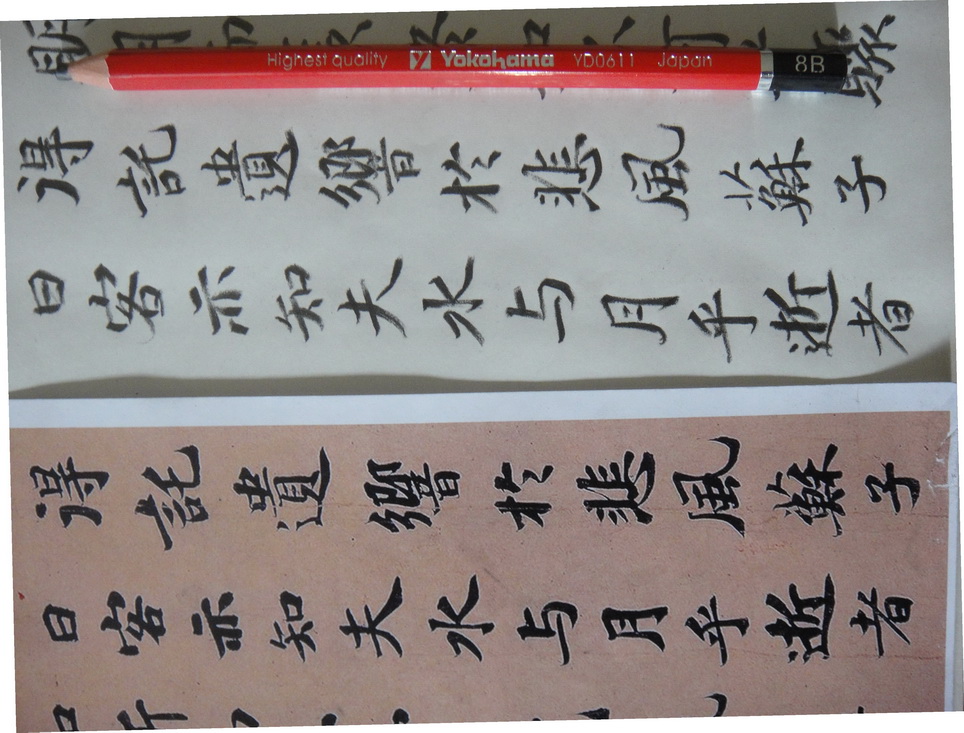 Highest quality Yokohama YD0611 Japan 8B
得託遺響於悲風蘇子
曰客亦知夫水与月乎逝者
得託遺響於悲風蘇子
曰客亦知夫水与月乎逝者